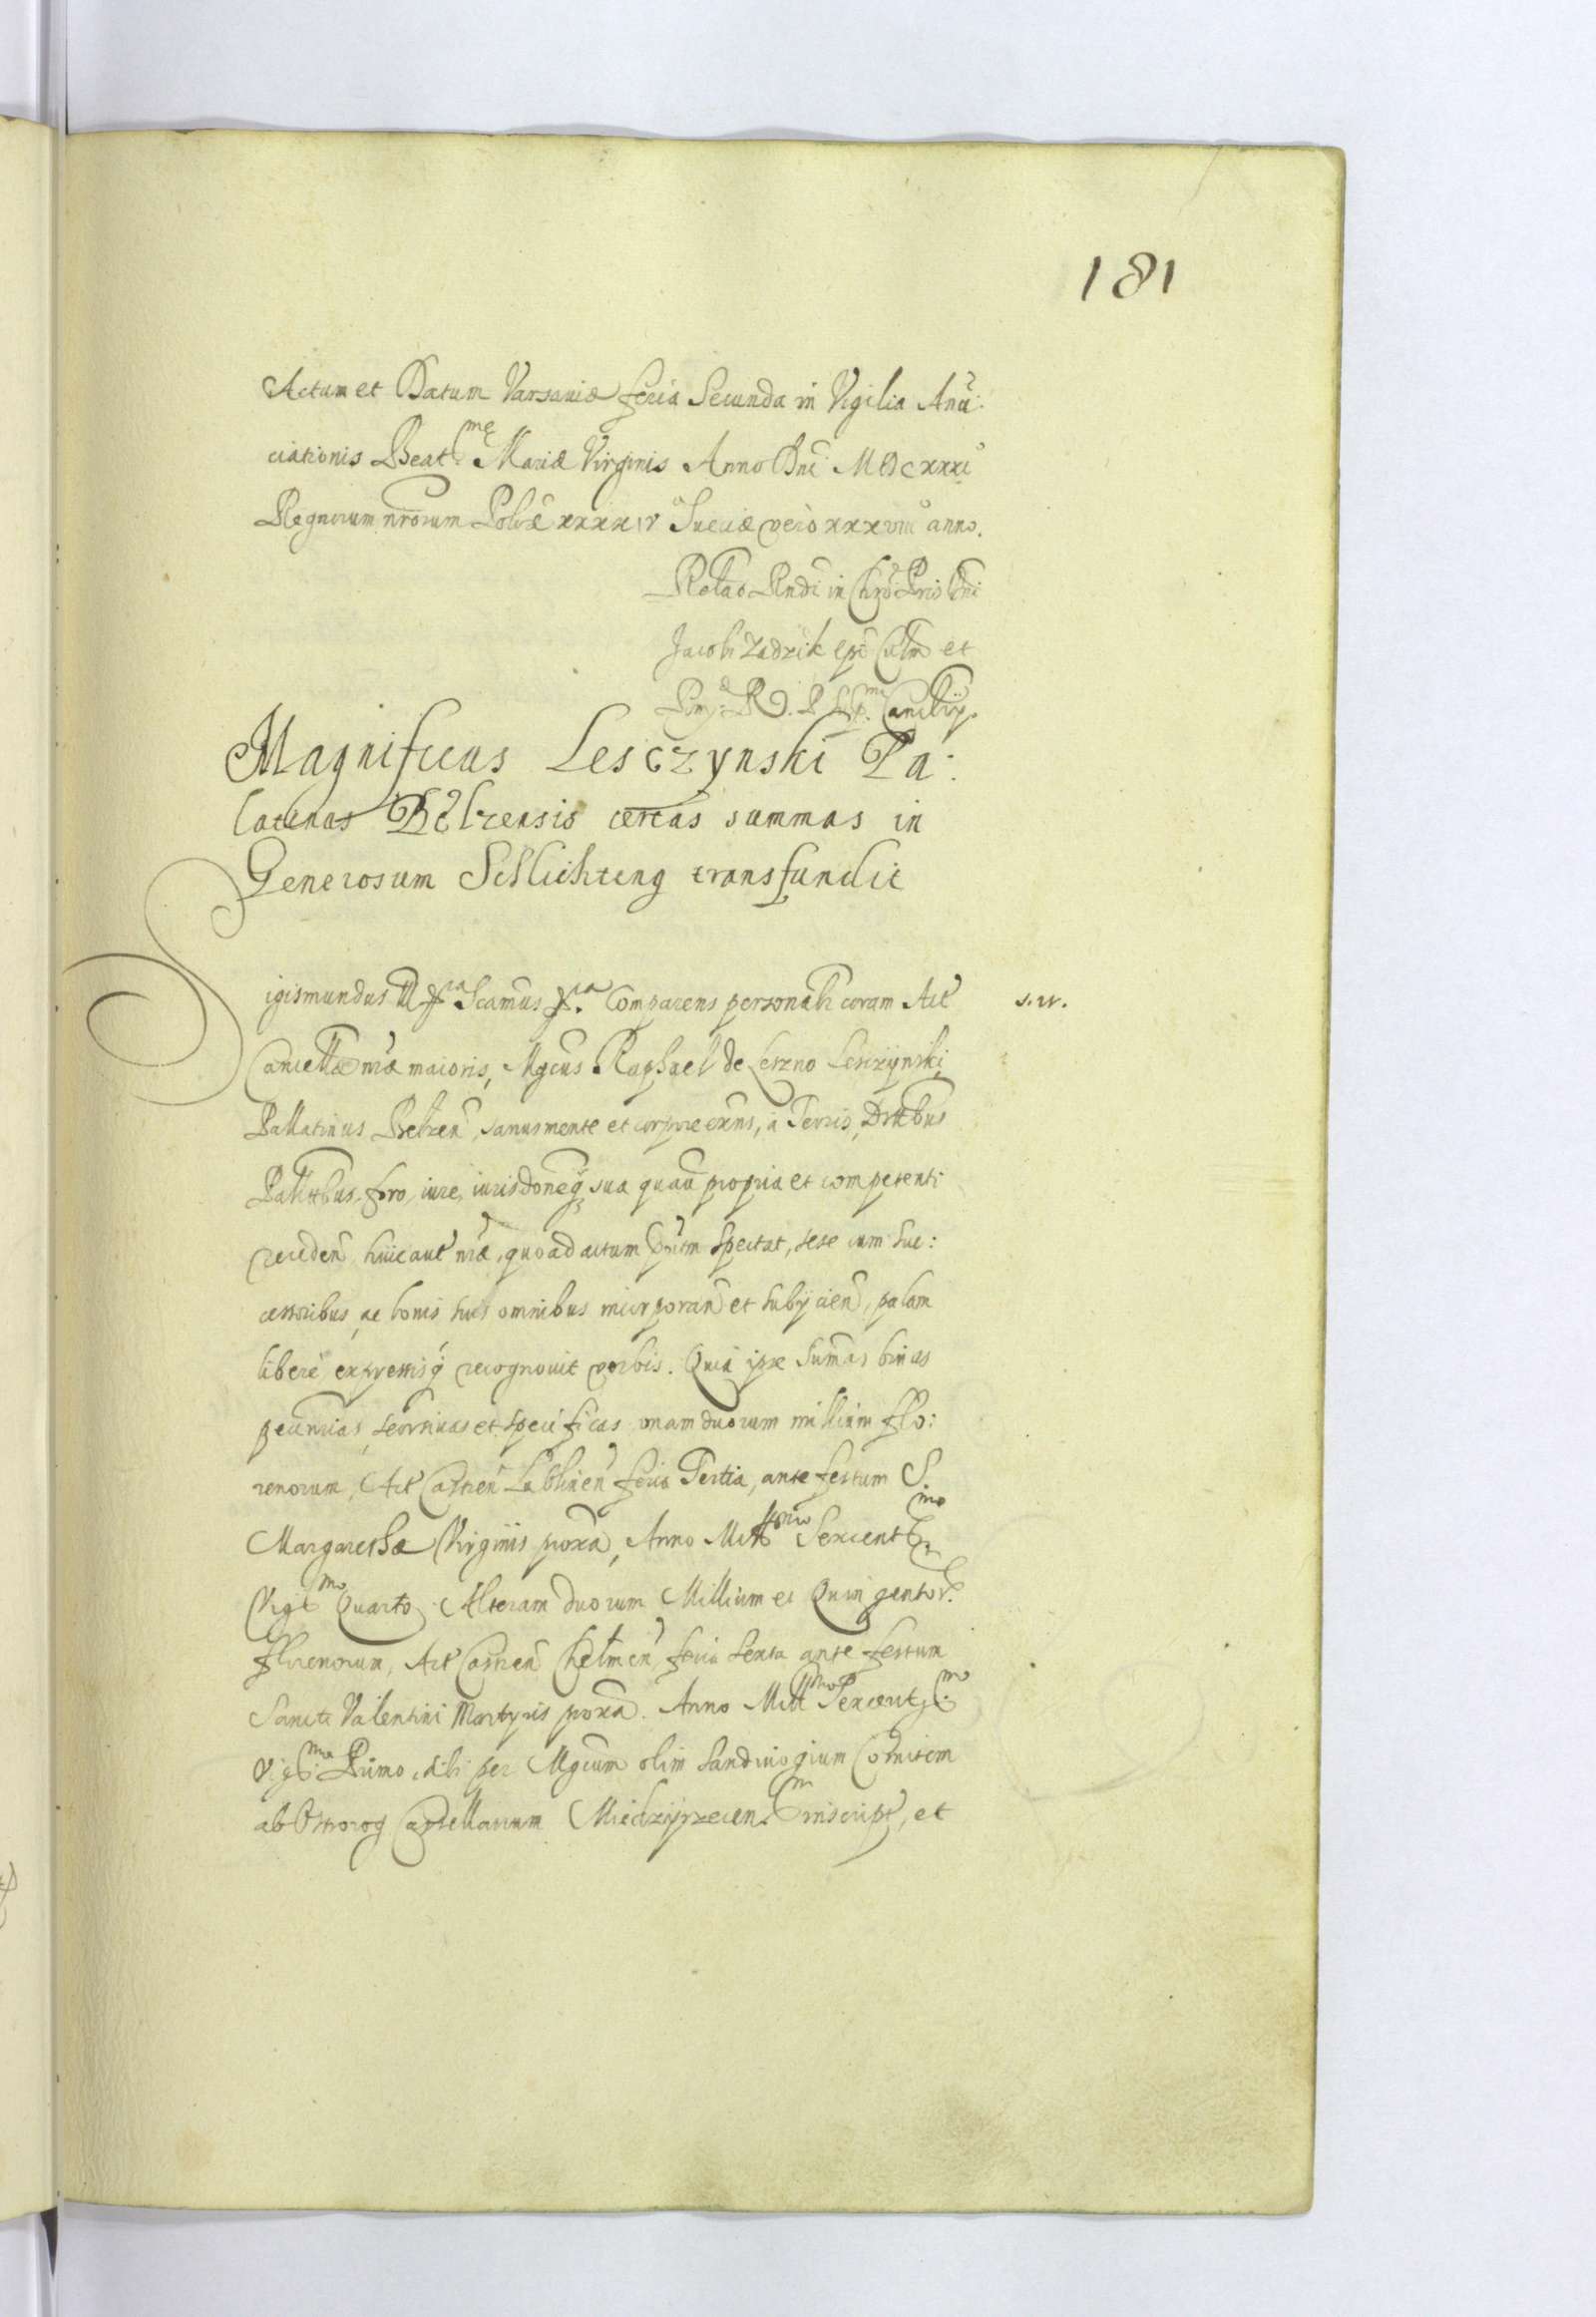 181
Actum et Datum Varsaviæ feria Secunda in Vigilia Anũ:
ciationis Beat:mę Mariæ Virginis Anno Dni MDCxxxi°
Regnorum nrorum Polõæ xxxxiv Sueciæ verò xxxviii° anno.
Relao Rndi in Chro Pris Dni
Jacobi Zadzik epi Culm et
Pom: R. P. Canclrij.
Magnificus Lesczynski Pa:
latinus Belzensis certas summas in
Generosum Schlichting transfundit
Sigismundus III etc. Significamus etc. Comparens personalr coram Act
s. w.
Cancellæ nræ maioris, Mgcus Raphael de Leszno Lesczynski
Pallatinus Belzen, sanus mente et corpore exns, à Terris, Dsttibus
Pallttbus, foro, iure, iurisdoneq sua quavi propria et competenti
receden huic aut nræ, quoad actum pntm spectat, sese cum suc:
cessoribus, ac bonis suis omnibus incorporan et subijcien, palam
libere expressisq recognovit verbis. Quia ipse sumas binas
pecunias, seorsivas et specificas, unam duorum millium flo:
renorum, Act Castren Lublinen feria Tertia, ante festum S.
Margarethæ Virginis proxa, Anno Millmo Sexcentmo
Vigmo Quarto. Alteram duorum Millium et Quingentor
florenorum, Act Castren Chelmen feria sexta ante festum
Sancti Valentini Martyris proxa. Anno Millmo Sexcentmo
Vigmo Primo, sibi per Mgcum olim Sandivogium Comitem
ab Ostrorog Castellanum Miedzyrzecen. inscript, et